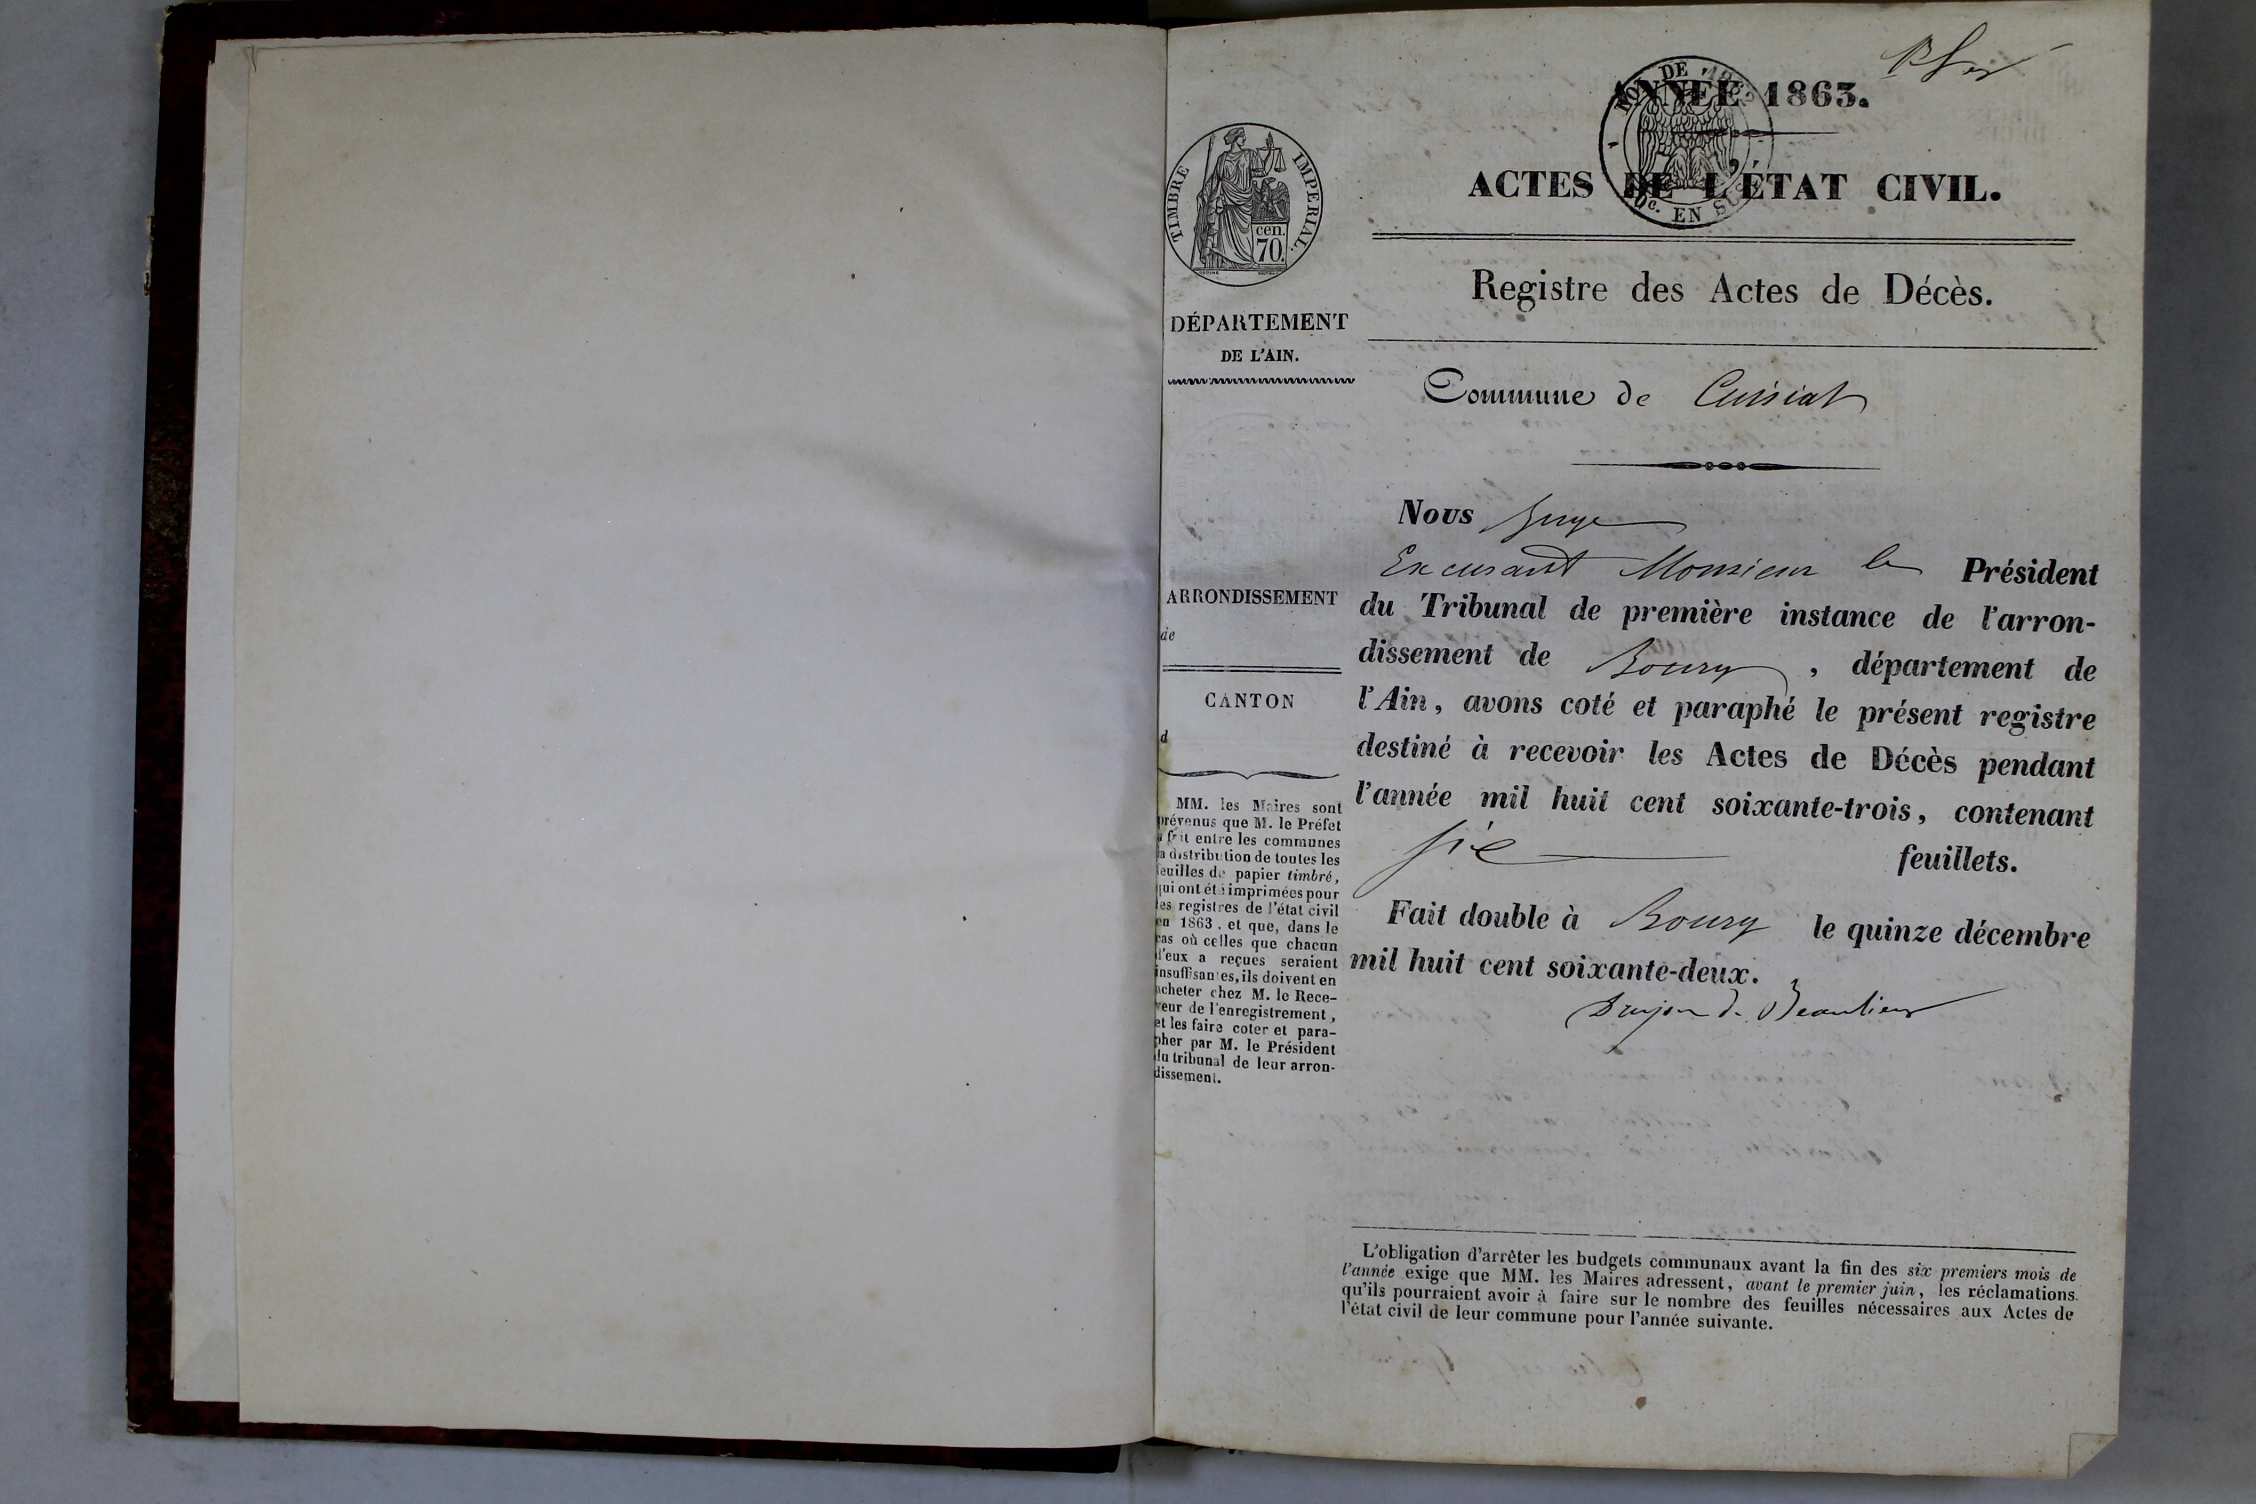 ANNÉE 1863.
LOI DE 1862
EN SUS
ACTES DE L'ÉTAT CIVIL.
TIMBRE IMPERIAL.
cen.
70.
Registre des Actes de Décès.
DÉPARTEMENT
DE L'AIN.
Commune de Cuisiat
Nous Juge
Excusant Monsieur le Président
du Tribunal de première instance de l'arron-
dissement de Bourg, département de
l'Ain, avons coté et paraphé le présent registre
destiné à recevoir les Actes de Décès pendant
l'année mil huit cent soixante-trois, contenant
six feuillets.
Fait double à Bourg le quinze décembre
mil huit cent soixante-deux.
Dujon de Beaulieu
ARRONDISSEMENT
de
CANTON
d
MM. les Maires sont
prévenus que M. le Préfet
a fait entre les communes
la distribution de toutes les
feuilles de papier timbré,
qui ont été imprimées pour
les registres de l'état civil
en 1863, et que, dans le
cas où celles que chacun
d'eux a reçues seraient
insuffisantes, ils doivent en
acheter chez M. le Rece-
veur de l'enregistrement,
et les faire coter et para-
pher par M. le Président
du tribunal de leur arron-
dissement.
L'obligation d'arrêter les budgets communaux avant la fin des six premiers mois de
l'année exige que MM. les Maires adressent, avant le premier juin, les réclamations
qu'ils pourraient avoir à faire sur le nombre des feuilles nécessaires aux Actes de
l'état civil de leur commune pour l'année suivante.